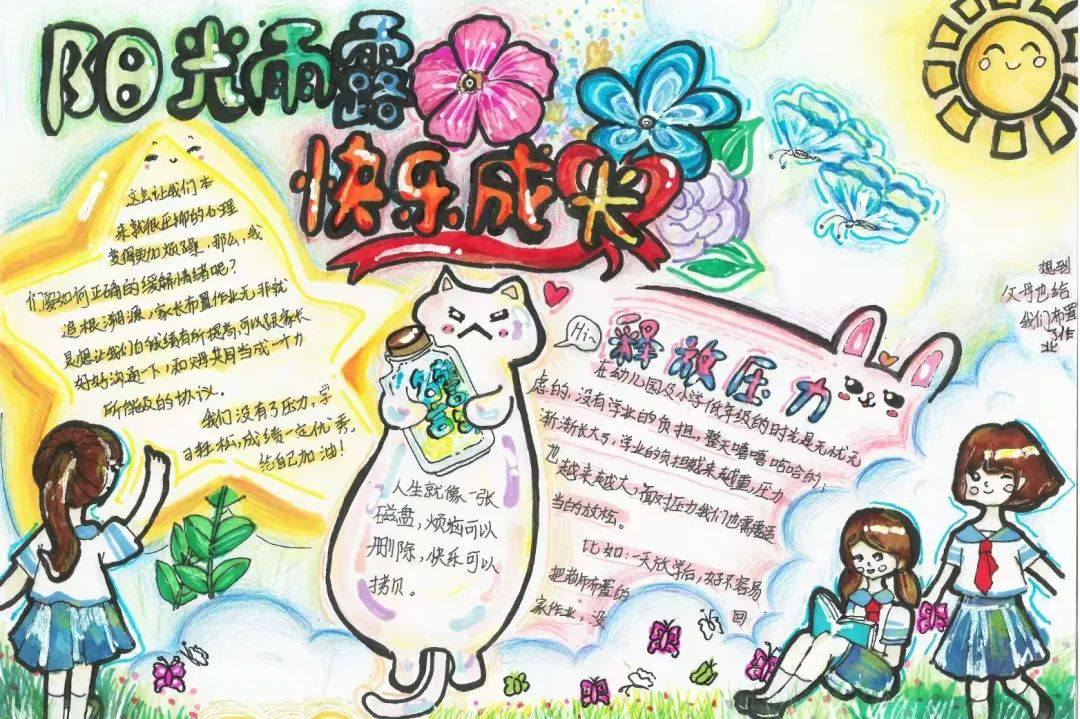 阳光雨露
快乐成长
这会让我们本
来就很压抑的心理
变得更加烦躁，那么，我
们要如何正确的缓解情绪呢？
追根溯源，家长布置作业无非就
是想让我们自成绩有所提高，可以跟家长
好好沟通下，和父母共同当成一个力
所能及的协议。
我们没有了压力，学
习轻松，成绩一定优秀。
给自己加油！
人生就像一张
磁盘，烦恼可以
删除，快乐可以
拷贝。
Hi~
释放压力
在幼儿园及小学低年级的时光是无忧无
虑的，没有学业的负担，整天嘻嘻哈哈的，
渐渐长大了，学业的负担越来越重，压力
也越来越大，面对压力我们也需要适
当的放松。
比如：一天放学后，好不容易
把老师布置的
家作业，没 回
想到
父母也给
我们布置
了作
业